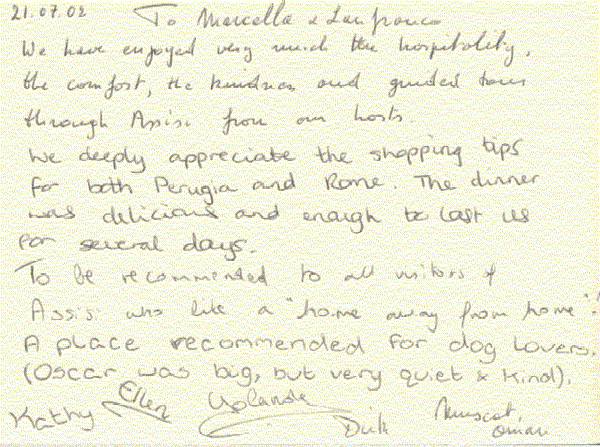 21.07.02 To Marcella & Lanfranco
We have enjoyed very much the hospitality,
the comfort, the kindness and guided tour
through Assisi from our hosts.
We deeply appreciate the shopping tips
for both Perugia and Rome. The dinner
was delicious and enough to last us
for several days.
To be recommended to all visitors of
Assisi who like a "home away from home"!
A place recommended for dog lovers.
(Oscar was big, but very quiet & kind).
Kathy Ellen Yolande Dirk Muscat,
Oman